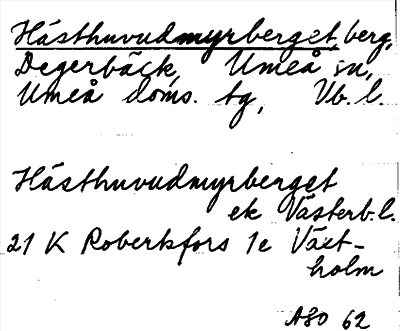 Hästhuvudmyrberget, berg,
Degerbäck, Umeå sn,
Umeå doms. tg, Vb. l.
Hästhuvudmyrberget
ek Västerb. l.
21 K Robertsfors 1e Växt-
holm
ASO 62